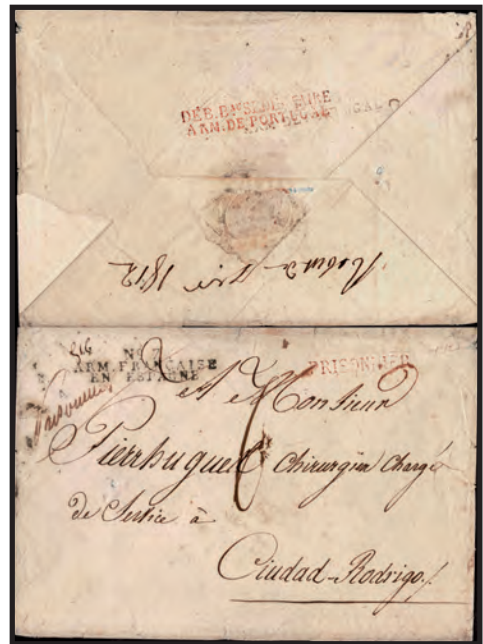 DEB. Bᴺ SEDENTAIRE
ARM. DE PORTUGAL
1812
Nº 7
ARM. FRANÇAISE
EN ESPAGNE
PRISONNIER
Prisonnier
A Monsieur
6
Pierrhuguet Chirurgien Chargé
De Service à
Ciudad-Rodrigo./.